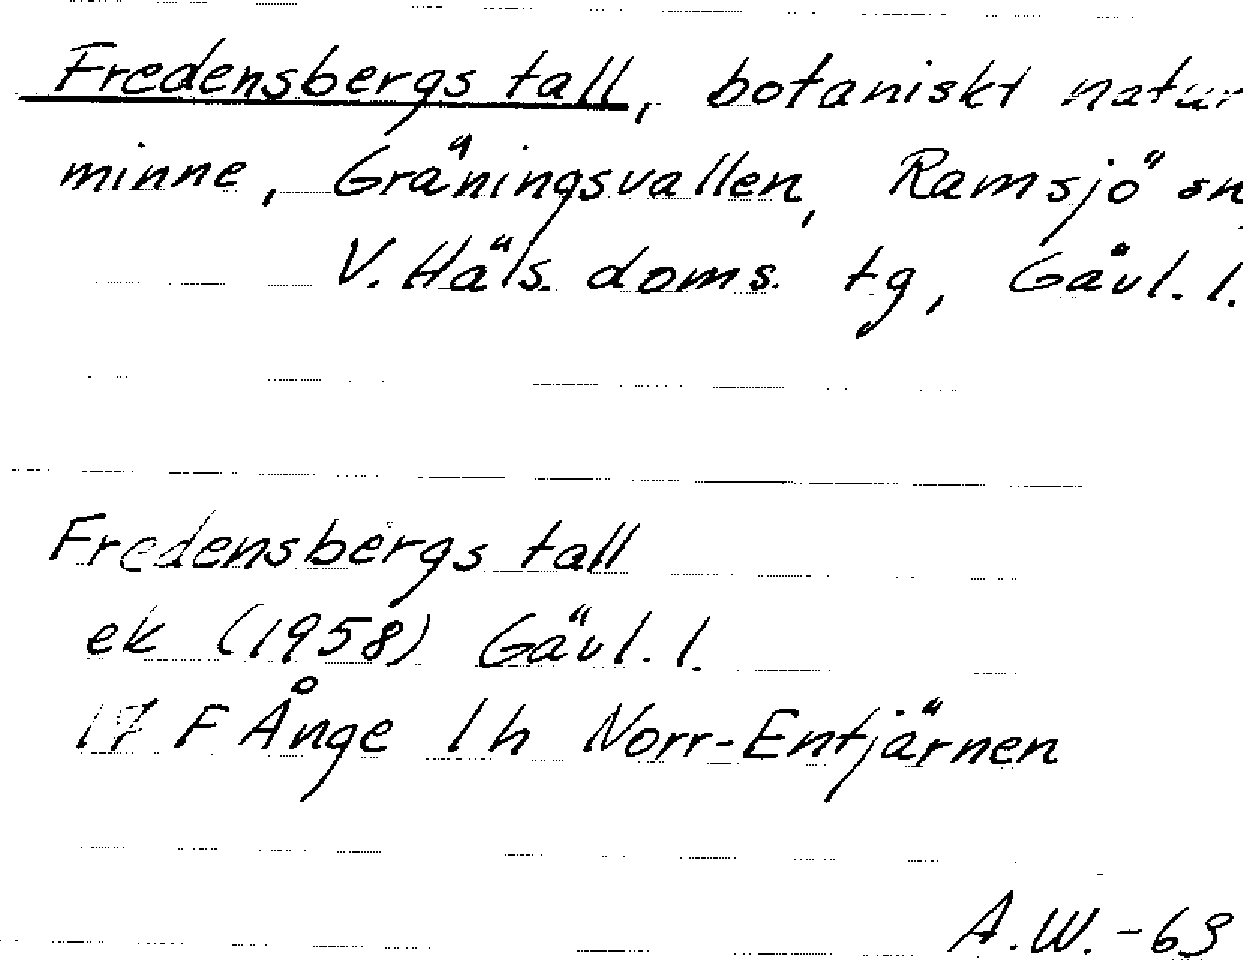 Fredensbergs tall, botaniskt natur
minne, Gräningsvallen, Ramsjö sn
V. Häls. doms. tg, Gävl. l.
Fredensbergs tall
ek (1958) Gävl. l.
17 F Ånge 1 h Norr-Entjärnen
A.W.-63